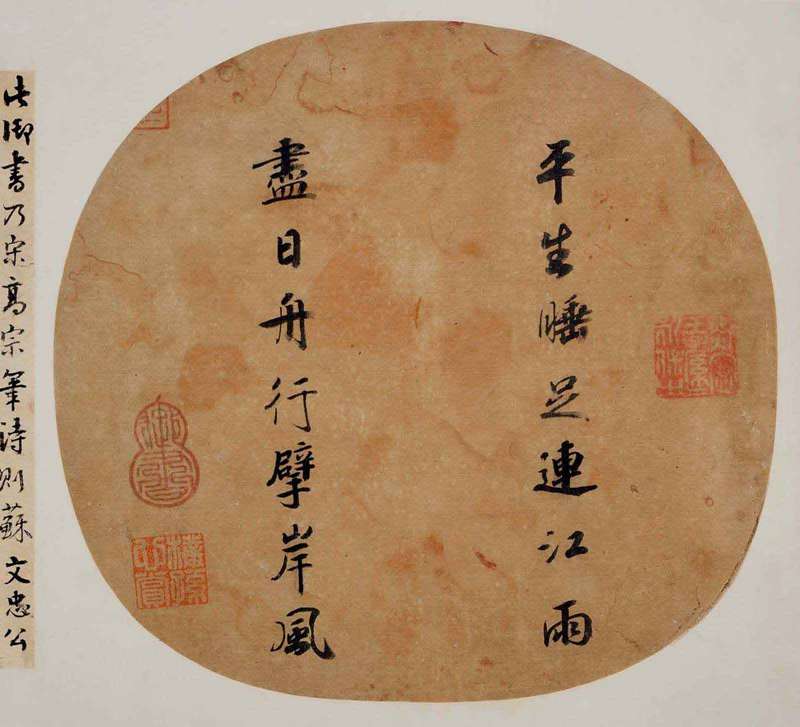 平生睡足連江雨
盡日舟行擘岸風
此御書乃宋高宗筆詩則蘇文忠公